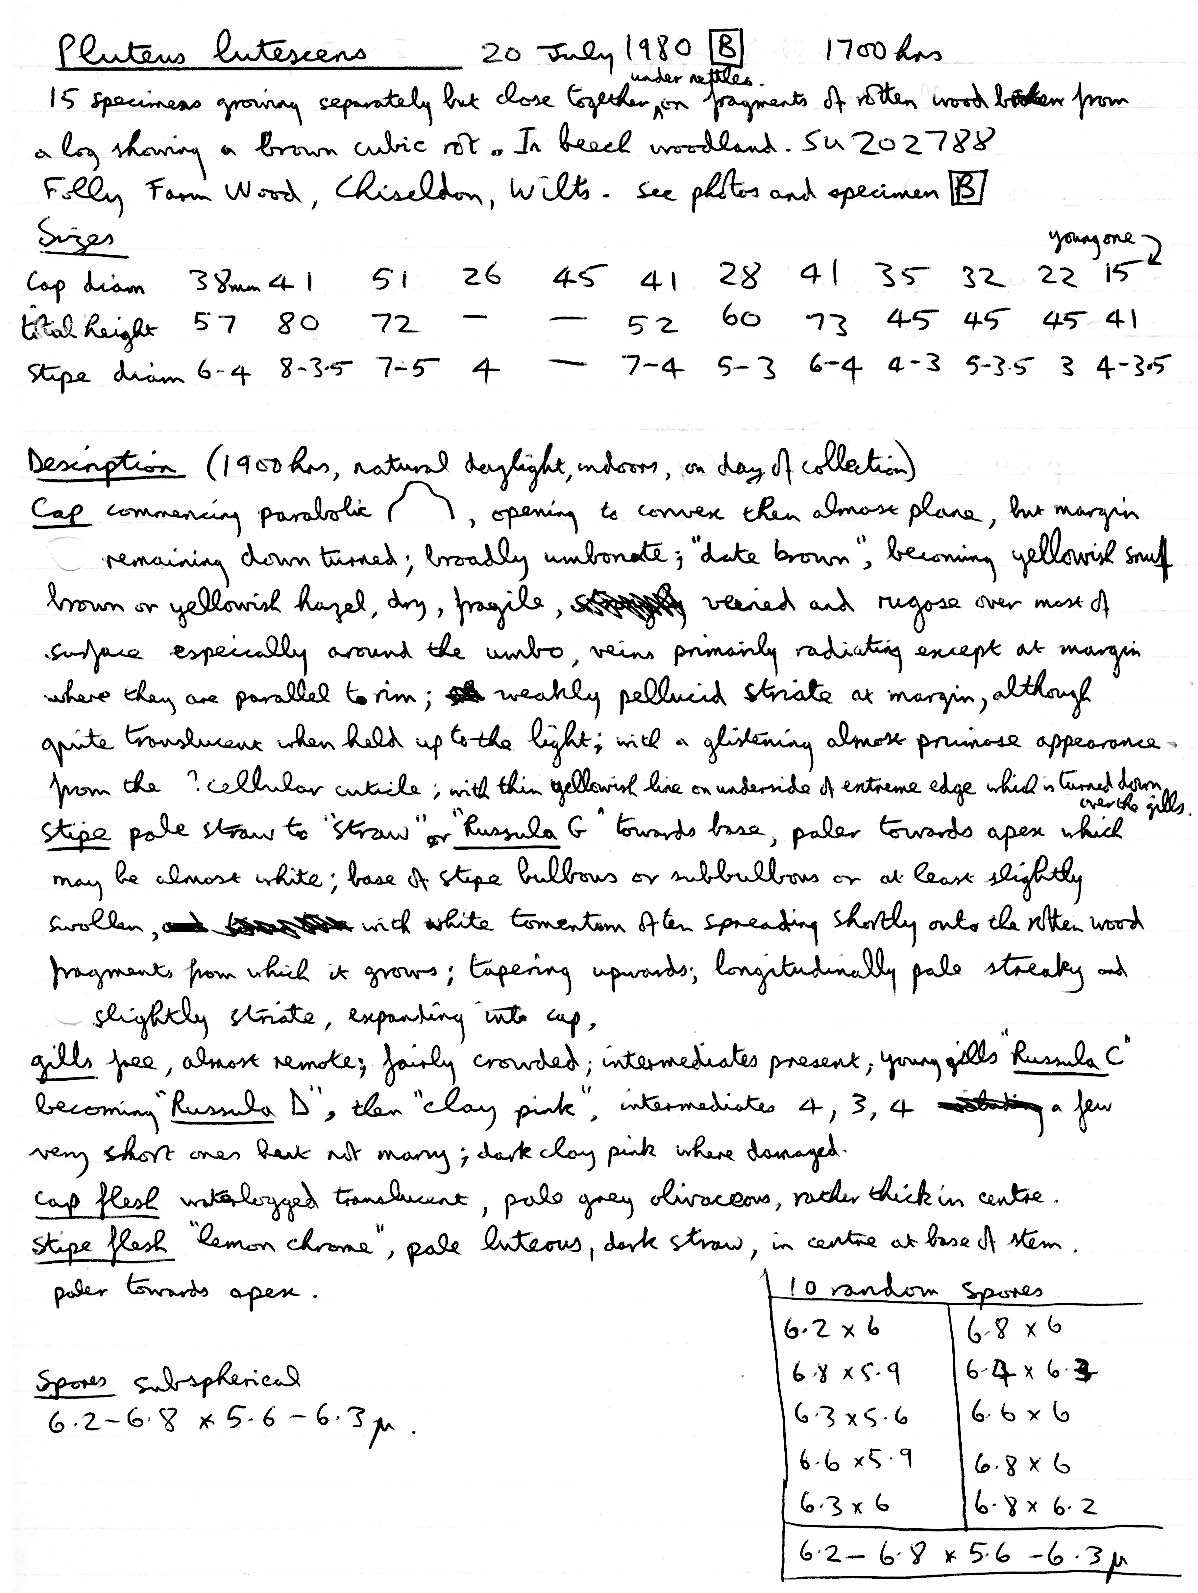 Pluteus lutescens 20 July 1980 B 1700 hrs
under nettles.
15 specimens growing separately but close together, on fragments of rotten wood broken from
a log showing a brown cubic rot. In beech woodland. SU 202788
Folly Farm Wood, Chiseldon, Wilts. see photos and specimen B
Sizes
young one
Cap diam 38mm 41 51 26 45 41 28 41 35 32 22 15
total height 57 80 72 — — 52 60 73 45 45 45 41
Stipe diam 6-4 8-3.5 7-5 4 — 7-4 5-3 6-4 4-3 5-3.5 3 4-3.5
Description (1900 hrs, natural daylight, indoors, on day of collection)
Cap commencing parabolic , opening to convex then almost plane, but margin
remaining down turned; broadly umbonate; "date brown", becoming yellowish snuff
brown or yellowish hazel, dry, fragile, veined and rugose over most of
surface especially around the umbo, veins primarily radiating except at margin
where they are parallel to rim; weakly pellucid striate at margin, although
quite translucent when held up to the light; with a glistening almost pruinose appearance
from the ? cellular cuticle; with thin yellowish line on underside of extreme edge which is turned down
over the gills.
Stipe pale straw to "straw" or "Russula G" towards base, paler towards apex which
may be almost white; base of stipe bulbous or subbulbous or at least slightly
swollen, with white tomentum often spreading shortly onto the rotten wood
fragments from which it grows; tapering upwards; longitudinally pale streaky and
slightly striate, expanding into cap,
gills free, almost remote; fairly crowded; intermediates present, young gills "Russula C"
becoming "Russula D", then "clay pink", intermediates 4, 3, 4 a few
very short ones but not many; dark clay pink where damaged.
Cap flesh waterlogged translucent, pale grey olivaceous, rather thick in centre.
Stipe flesh "lemon chrome", pale luteous, dark straw, in centre at base of stem.
paler towards apex.
Spores subspherical
6.2-6.8 x 5.6-6.3 µ.
10 random spores
6.2 x 6 6.8 x 6
6.8 x 5.9 6.4 x 6.3
6.3 x 5.6 6.6 x 6
6.6 x 5.9 6.8 x 6
6.3 x 6 6.8 x 6.2
6.2-6.8 x 5.6-6.3 µ